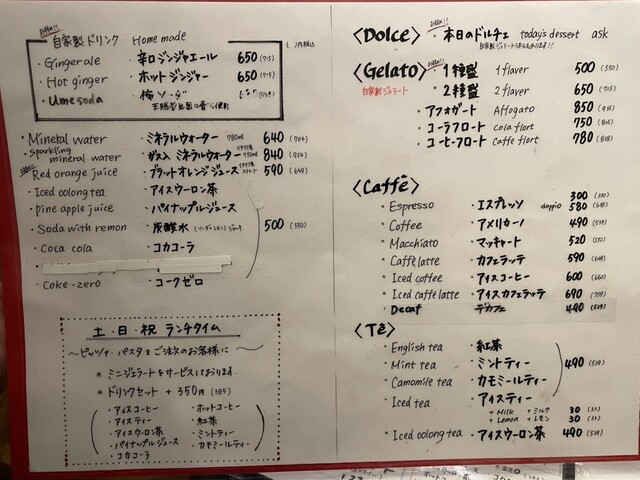 自家製ドリンク Home made
( )内税込
・Ginger ale ・辛口ジンジャエール 650 (715)
・Hot ginger ・ホットジンジャー 650 (715)
・Ume soda ・梅ソーダ
・Mineral water ・ミネラルウォーター 780ml 640 (704)
・Sparkling mineral water ・ガス入ミネラルウォーター 750ml 840 (924)
・Red orange juice ・ブラッドオレンジジュース 590 (649)
・Iced oolong tea ・アイスウーロン茶
・pine apple juice ・パイナップルジュース
・Soda with remon ・炭酸水 500 (550)
・Coca cola ・コカコーラ
・Coke-zero ・コークゼロ
土・日・祝 ランチタイム
〜ピッツァ・パスタをご注文のお客様に〜
* ミニジェラートをサービスしております。
* ドリンクセット + 350円 (385)
・アイスコーヒー ・ホットコーヒー
・アイスティー ・紅茶
・アイスウーロン茶 ・ミントティー
・パイナップルジュース ・カモミールティー
・コカコーラ
〈Dolce〉 ・本日のドルチェ today's dessert ask
〈Gelato〉 ・1種盛 1 flaver 500 (550)
自家製ジェラート ・2種盛 2 flaver 650 (715)
・アフォガート Affogato 850 (935)
・コーラフロート Cola flort 750 (825)
・コーヒーフロート Caffe flort 780 (858)
〈Caffè〉
・Espresso ・エスプレッソ 300 (330)
doppio 580 (638)
・Coffee ・アメリカーノ 490 (539)
・Macchiato ・マッキャート 520 (572)
・Caffè latte ・カフェラッテ 590 (649)
・Iced coffee ・アイスコーヒー 600 (660)
・Iced caffè latte ・アイスカフェラッテ 690 (759)
・Decaf ・デカフェ 490 (539)
〈Tè〉
・English tea ・紅茶
・Mint tea ・ミントティー 490 (539)
・Camomile tea ・カモミールティー
・Iced tea ・アイスティー
+ Milk + ミルク 30 (33)
+ Lemon + レモン 30 (33)
・Iced oolong tea ・アイスウーロン茶 490 (539)